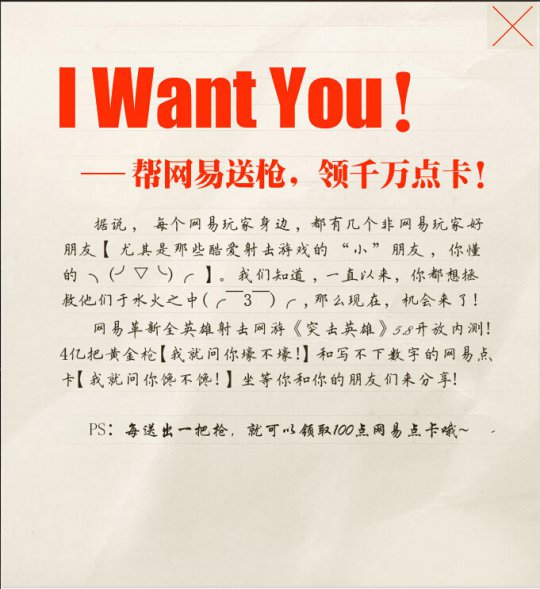 I Want You!
——帮网易送枪，领千万点卡!
据说，每个网易玩家身边，都有几个非网易玩家好
朋友【尤其是那些酷爱射击游戏的“小”朋友，你懂
的╮(╯▽╰)╭】。我们知道，一直以来，你都想拯
救他们于水火之中(╭￣3￣)╭，那么现在，机会来了!
网易革新全英雄射击网游《突击英雄》58开放内测!
4亿把黄金枪【我就问你壕不壕!】和写不下数字的网易点
卡【我就问你馋不馋!】坐等你和你的朋友们来分享!
PS：每送出一把枪，就可以领取100点网易点卡哦~